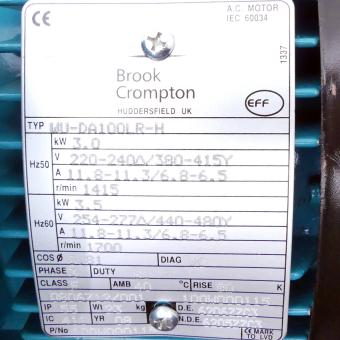 A.C. MOTOR
IEC 60034
Brook
Crompton
HUDDERSFIELD UK
EFF
1337
TYP WU-DA100LR-H
Hz50
kW 3.0
V 220-240∆/380-415Y
A 11.8-11.3/6.8-6.5
r/min 1415
Hz60
kW 3.5
V 254-277∆/440-480Y
A 11.8-11.3/6.8-6.5
r/min 1700
COS Ø DIAG
PHASE DUTY
CLASS AMB 40 °C RISE 80 K
IP Wt kg D.E.
IC YR N.D.E.
P/No
CE MARK
TO LVD